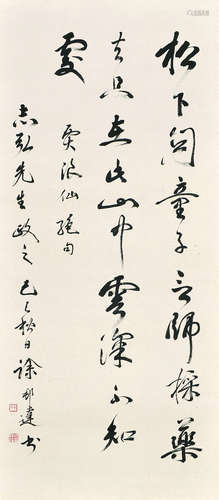 松下问童子言师採药
去只在此山中云深不知
处
贾浪仙绝句
志弘先生政之 己巳秋日 徐邦达书